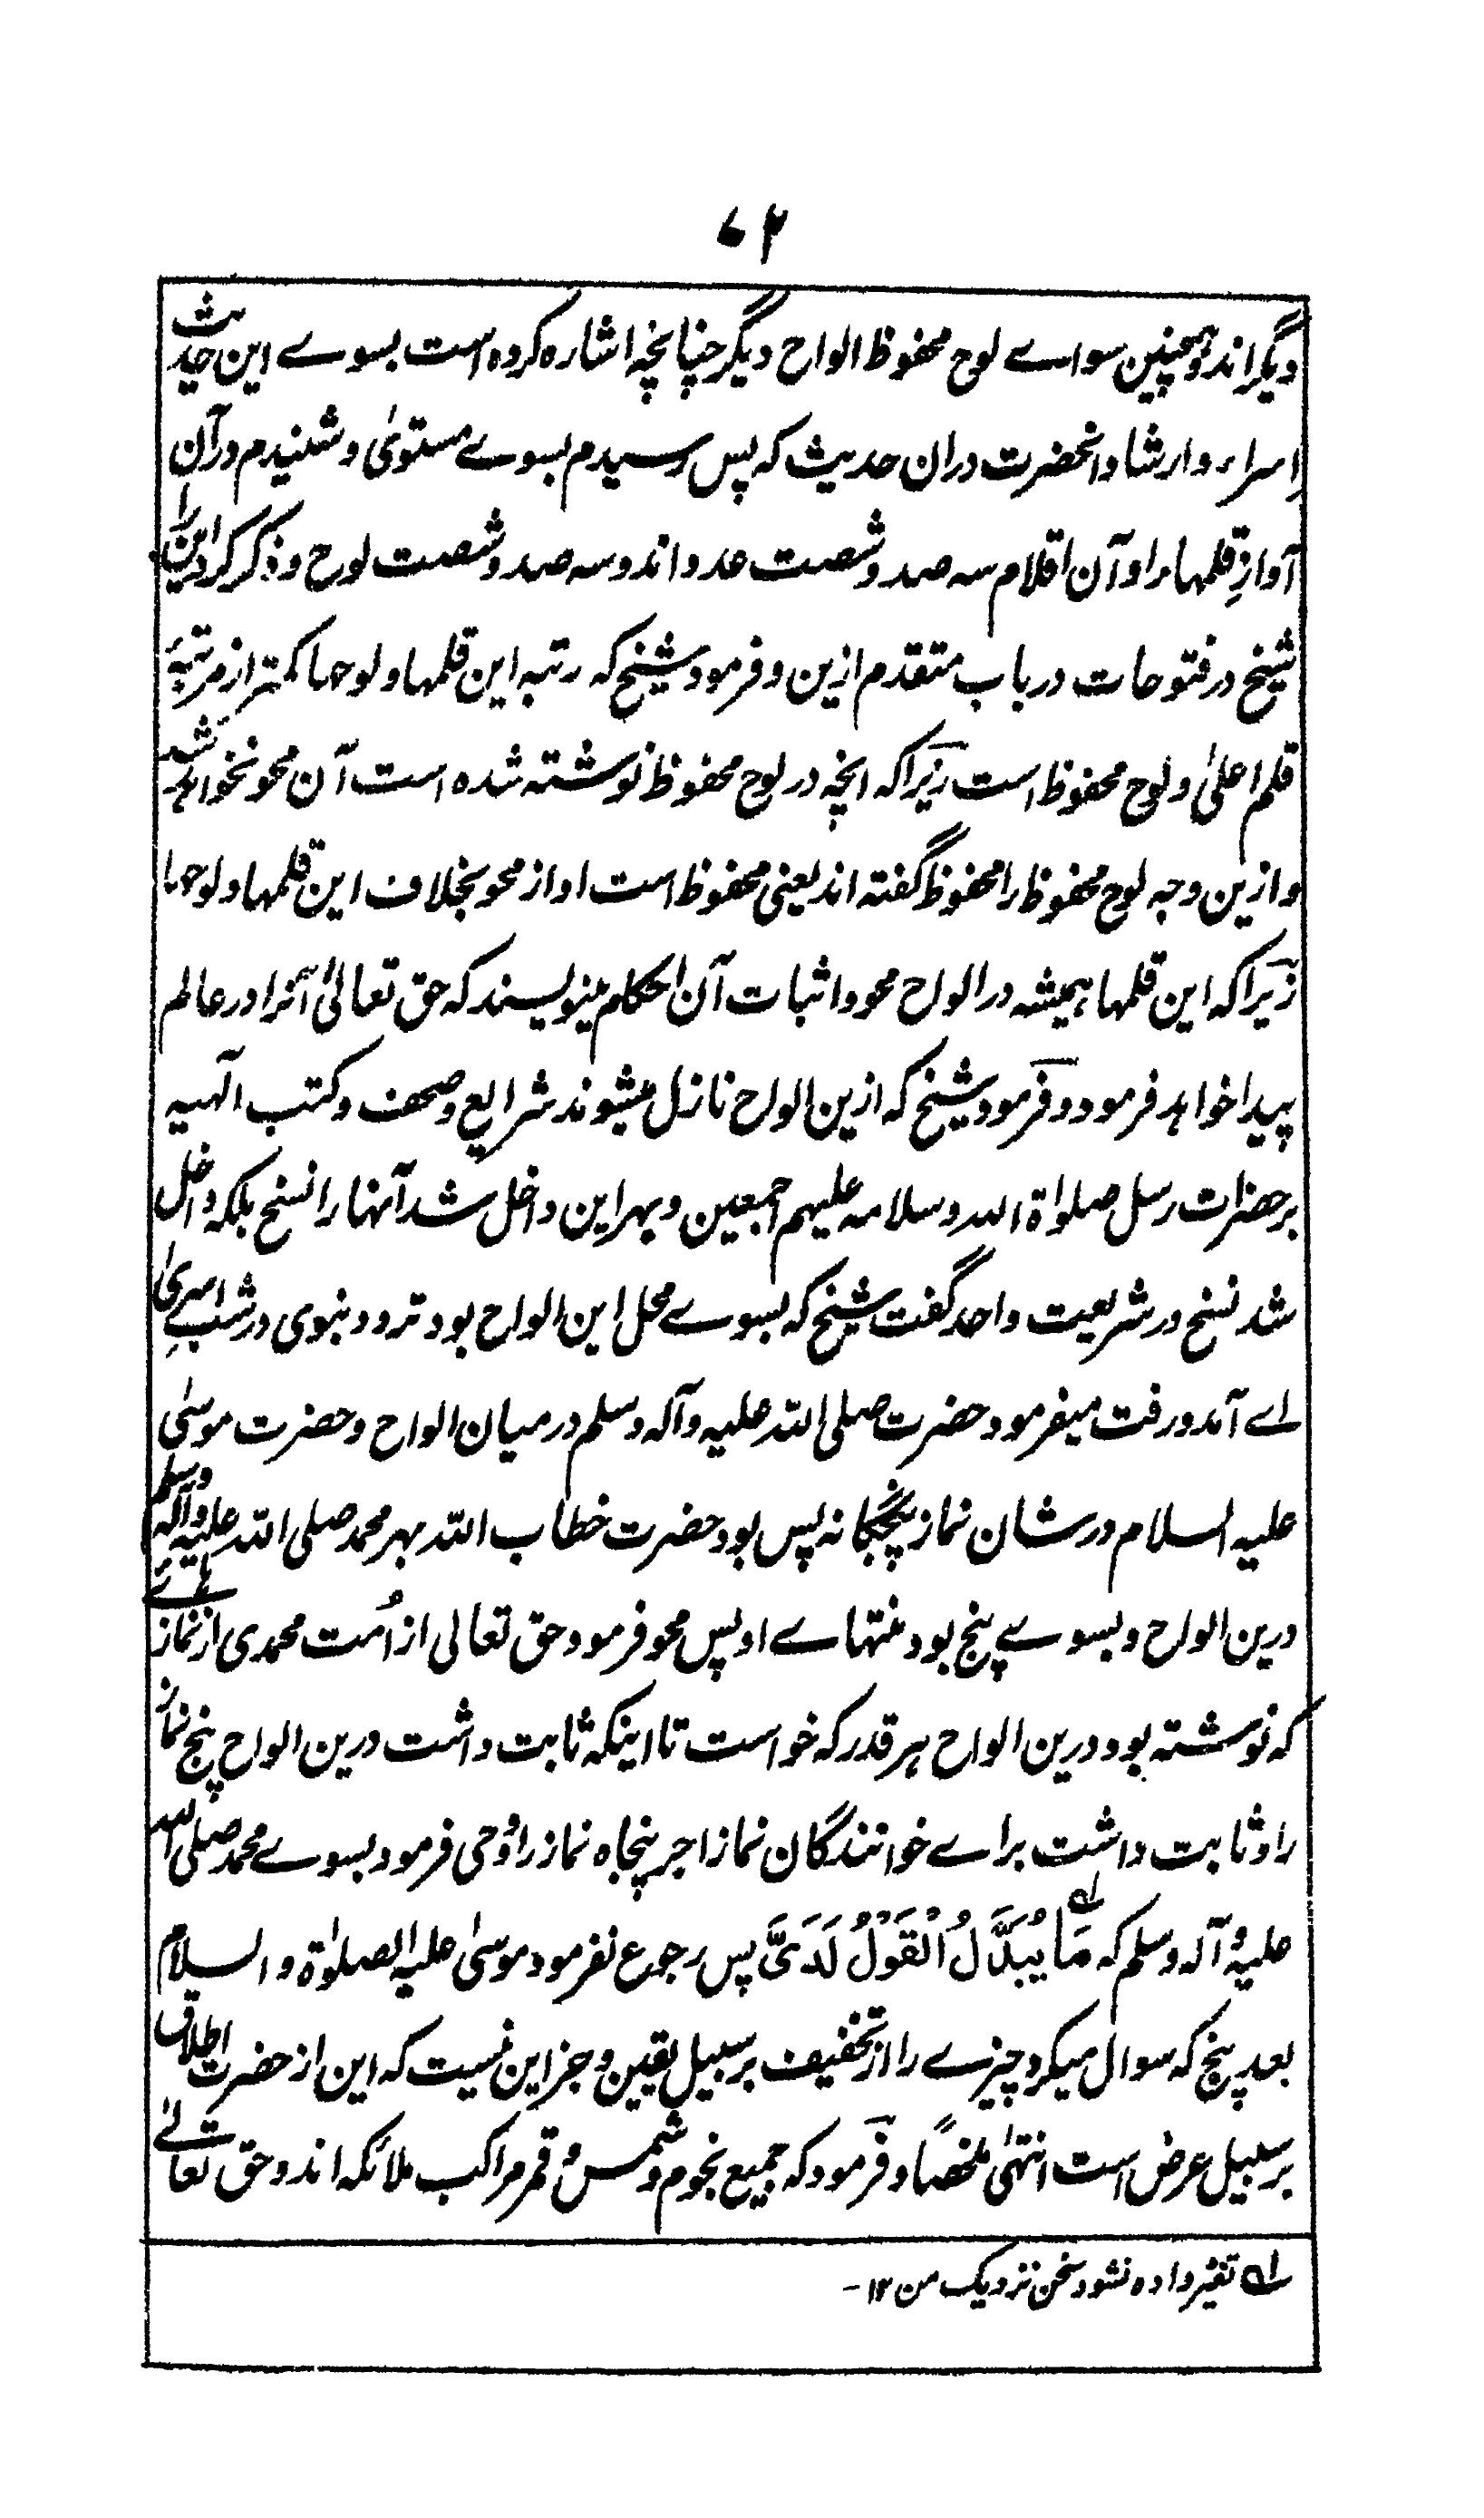 ۷۲
دیگراند و همچنین سواے لوح محفوظ الواح دیگر چنانچه اشاره کرده است بسوے این حدیث
اِسراء و ارشاد آنحضرت دران حدیث که پس رسیدم بسوے مستویٰ و شنیدم در آن
آوازِ قلمهاء را و آن اقلام سه صد و شصت عدد اند و سه صد و شصت لوح و ذکر کرد این را
شیخ در فتوحات در باب متقدم ازین و فرمود شیخ که رتبه این قلمها و لوحها کمتر از مرتبهٔ
قلم اعلیٰ و لوح محفوظ است زیراکه انچه در لوح محفوظ نوشته شده است آن محو نخواهد شد
و ازین وجه لوح محفوظ را محفوظ گفته اند یعنی محفوظ است او از محو بخلاف این قلمها و لوحها
زیراکه این قلمها همیشه در الواح محو و اثبات آن احکام مینویسند که حق تعالیٰ آنرا در عالم
پیدا خواهد فرمود و فرمود شیخ که ازین الواح نازل میشوند شرایع و صحف و کتب الٰهیه
بر حضرات رسل صلواة الله و سلامه علیهم اجمعین و بهر این داخل شد آنها را نسخ بلکه داخل
شد نسخ در شریعت واحد گفت شیخ که بسوے محل این الواح بود تردد نبوی در شبِ اسریٰ
اے آمد و رفت میفرمود حضرت صلی الله علیه و آله و سلم در میان الواح و حضرت موسیٰ
علیه السلام در شان نماز پنجگانه پس بود حضرت خطاب الله بهر محمد صلی الله علیه و آله و سلم
درین الواح و بسوے پنج بود منتهاے او پس محو فرمود حق تعالی از اُمت محمدی از نماز هائے
که نوشته بود درین الواح هر قدر که خواست تا اینکه ثابت داشت درین الواح پنج نماز
را و ثابت داشت براے خوانندگان نماز اجر پنجاه نماز را و وحی فرمود بسوے محمد صلی الله
علیه و آله و سلم که مَا یُبَدَّلُ الْقَوْلُ لَدَیَّ پس رجوع نفرمود موسیٰ علیه الصلوٰة و السلام
بعد پنج که سوال میکرد چیزے را از تخفیف بر سبیل یقین و جز این نیست که این از حضرت اطلاق
بر سبیل عرض است انتهیٰ ملخصاً و فرمود که جمیع نجوم و شمس و قمر مراکب ملائکه اند و حق تعالےٰ
لے تغیر داده نشود سخن نزدیک من ۱۲-